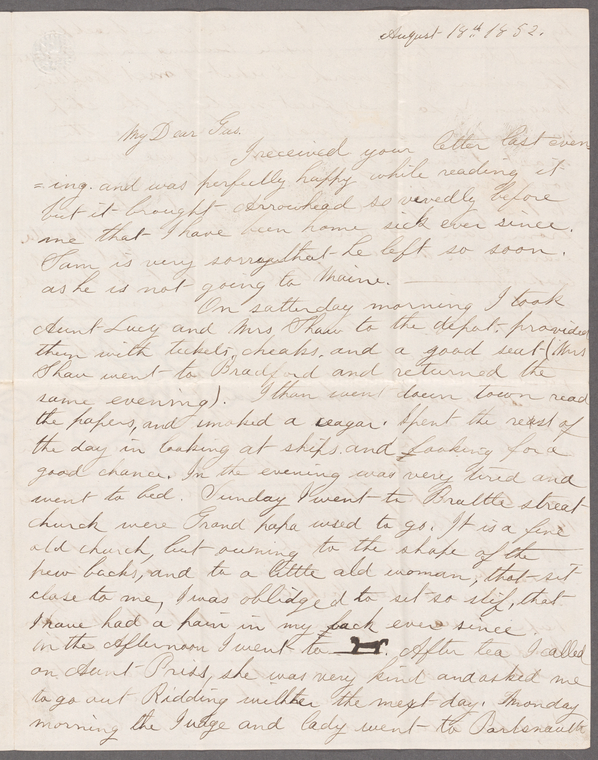 August 18th 1852.
My Dear Gus.
I received your letter last even
=ing. and was perfectly happy while reading it
but it brought Arrowhead so vevedly before
me that I have been home sick ever since.
Sam is very sorry that he left so soon.
as he is not going to Maine.
On satterday morning I took
Aunt Lucy and Mrs Shaw to the depot. provided
them with tickets, cheaks. and a good seat (Mrs
Shaw went to Bradford and returned the
same evening). I than went down town read
the papers, and smoked a ceagar. Spent the rest of
the day in looking at ships. and looking for a
good chance. In the evening was very tired and
went to bed. Sunday I went to Brattle streat
church were Grand papa used to go. It is a fine
old church, but owning to the shape of the
pew backs, and to a little old woman, that sit
close to me, I was oblidged to sit so stif, that
I have had a pain in my back ever since.
in the Afternoon I went to . After tea I called
on Aunt Priss, she was very kind and asked me
to go out Ridding with her the mext day. Monday
morning the Judge and lady went to Portsmouth